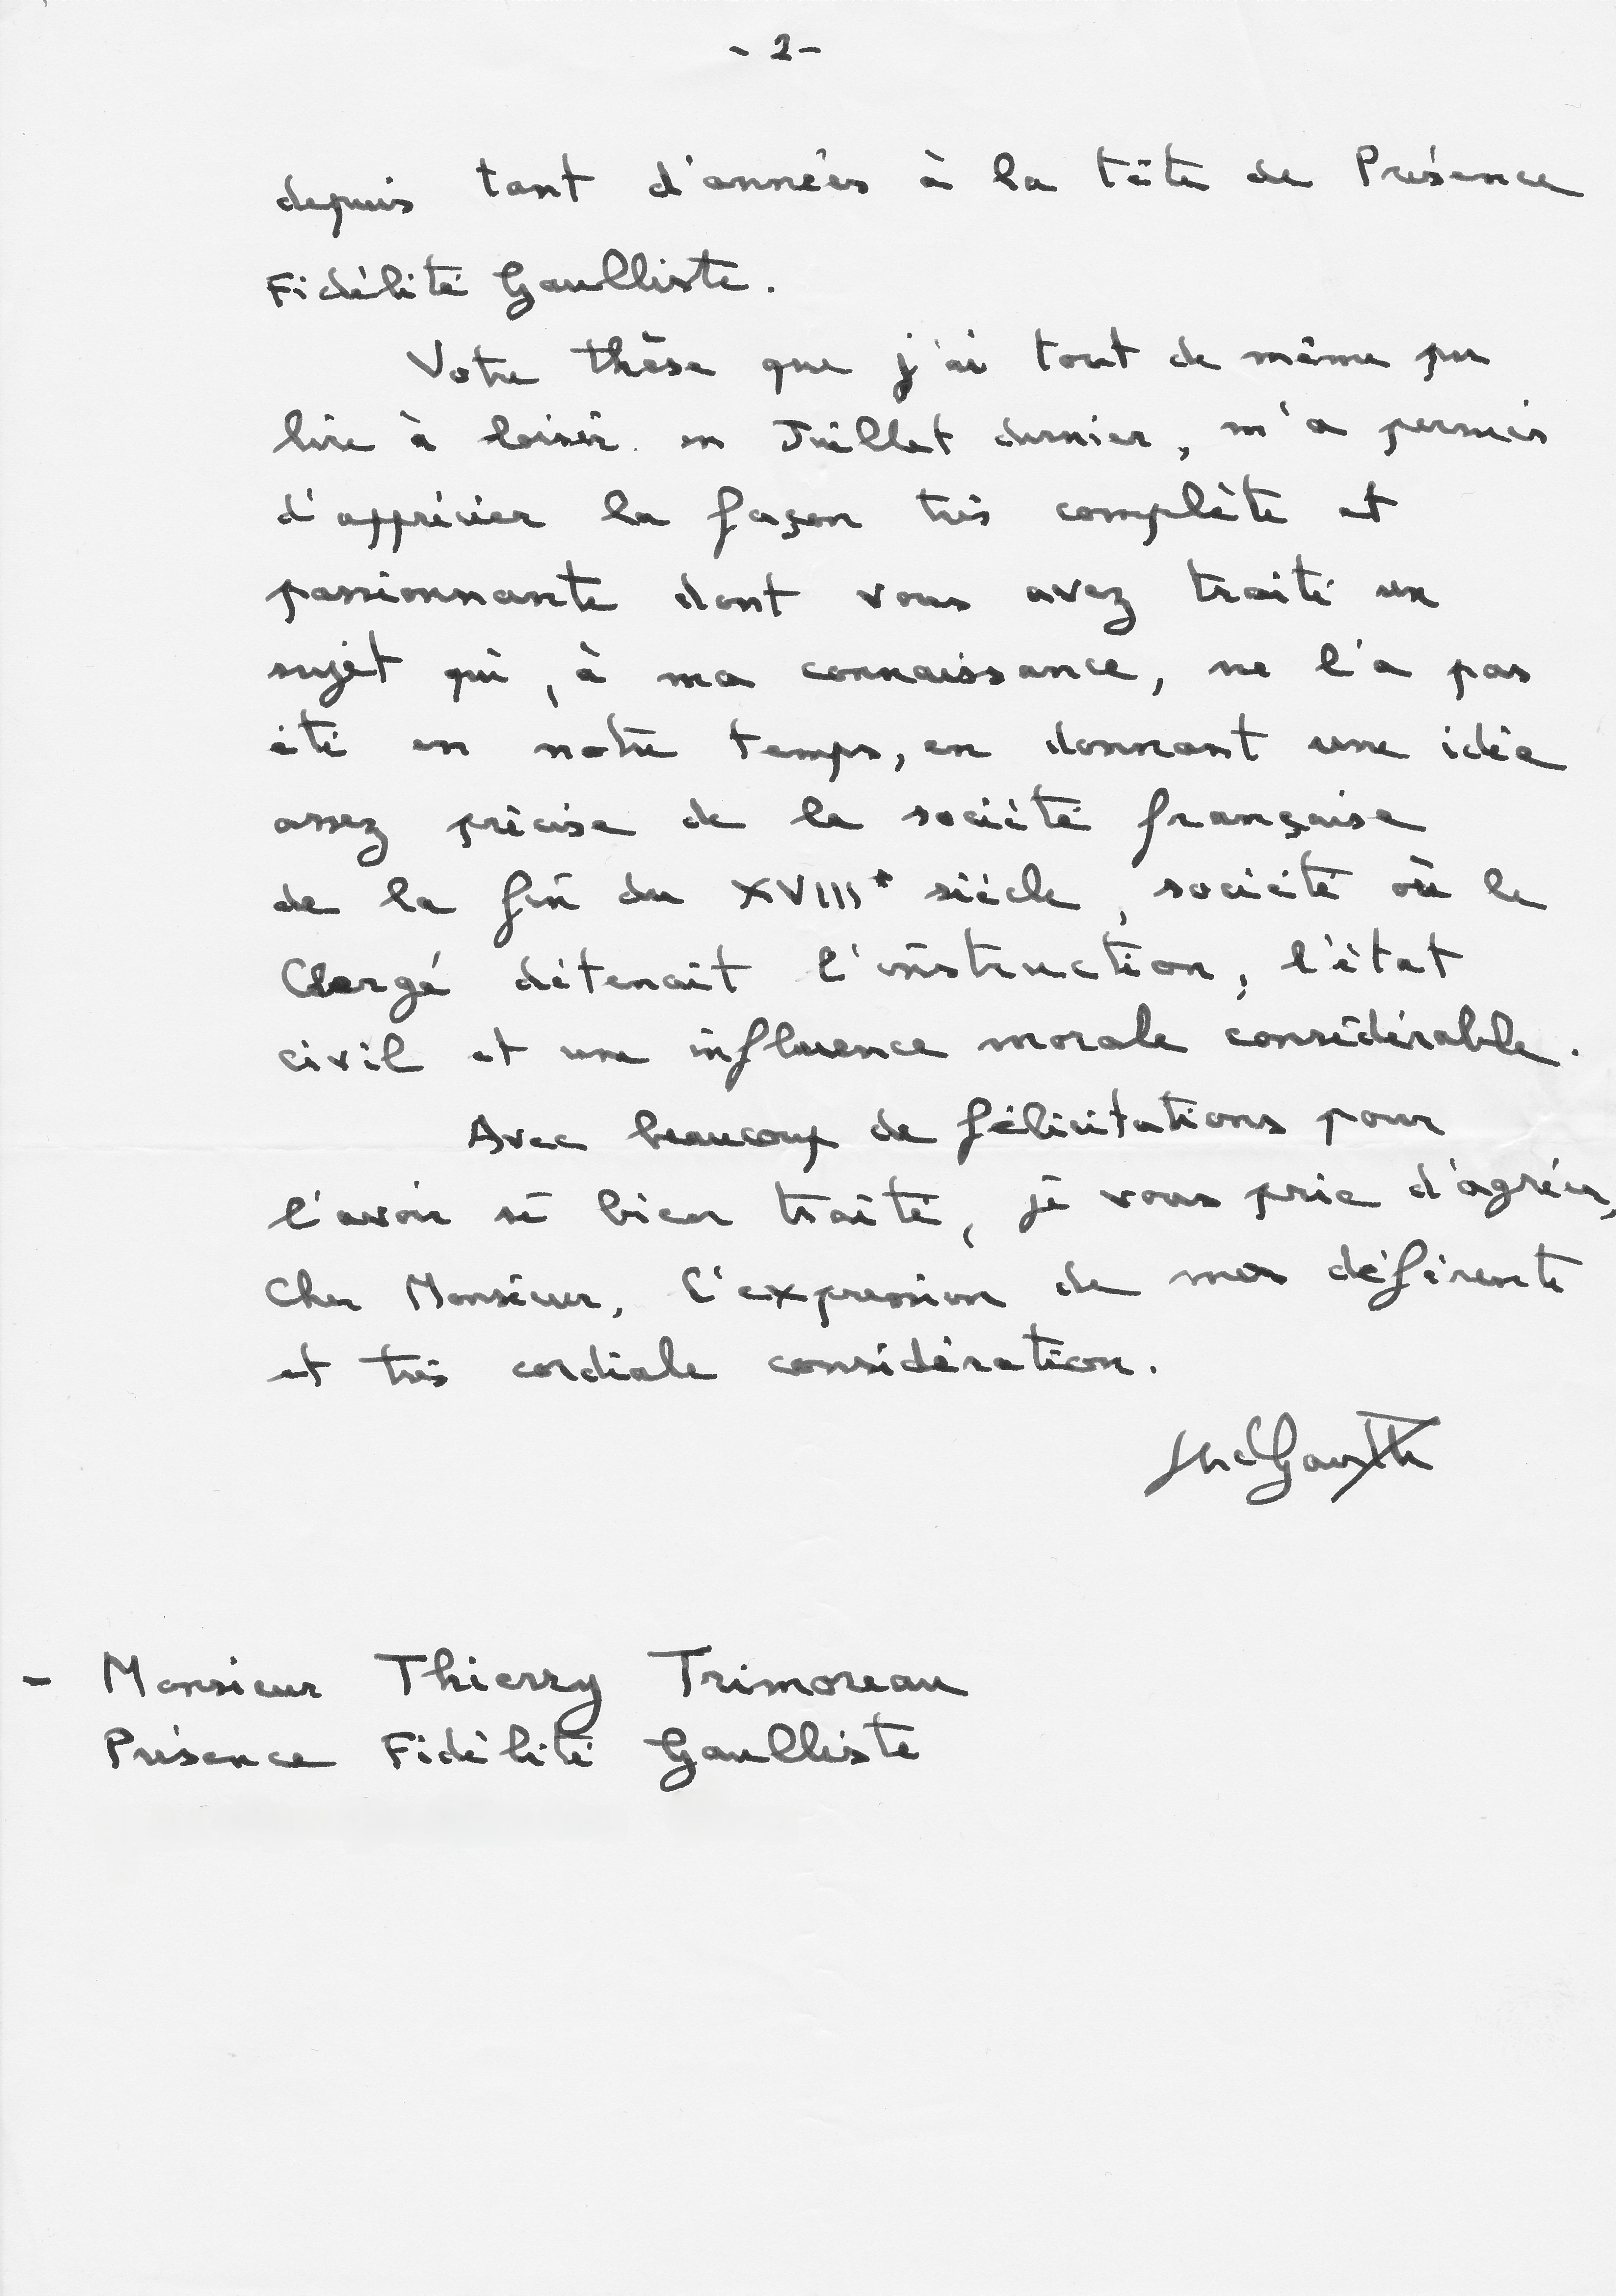 - 2 -
depuis tant d'années à la tête de Présence
Fidélité Gaulliste.
Votre thèse que j'ai tout de même pu
lire à loisir en Juillet dernier, m'a permis
d'apprécier la façon très complète et
passionnante dont vous avez traité un
sujet qui, à ma connaissance, ne l'a pas
été en notre temps, en donnant une idée
assez précise de la société française
de la fin du XVIII° siècle, société où le
Clergé détenait l'instruction, l'état
civil et une influence morale considérable.
Avec beaucoup de félicitations pour
l'avoir si bien traité, je vous prie d'agréer,
Cher Monsieur, l'expression de ma déférente
et très cordiale considération.
- Monsieur Thierry Trimoreau
Présence Fidélité Gaulliste